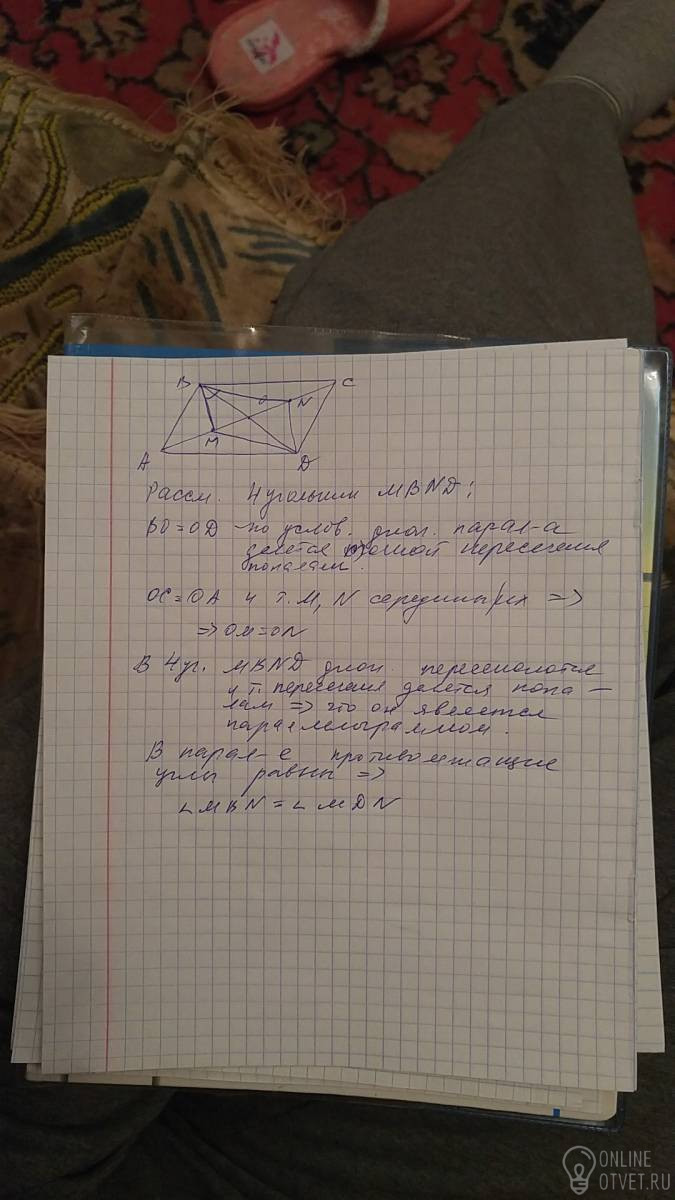 B C
O N
M
A D
Рассм. 4угольник MBND;
BO=OD - по услов. диог. парал-а
делется точкой пересечения
пополам.
OC=OA и т. M, N середины их =>
=> OM=ON
В 4уг. MBND диог. пересекаются
и т. пересечения делется попо-
лам => что он является
параллелограммом.
В парал-е противолежащие
углы равны =>
∟MBN=∟MDN
ONLINE
OTVET.RU